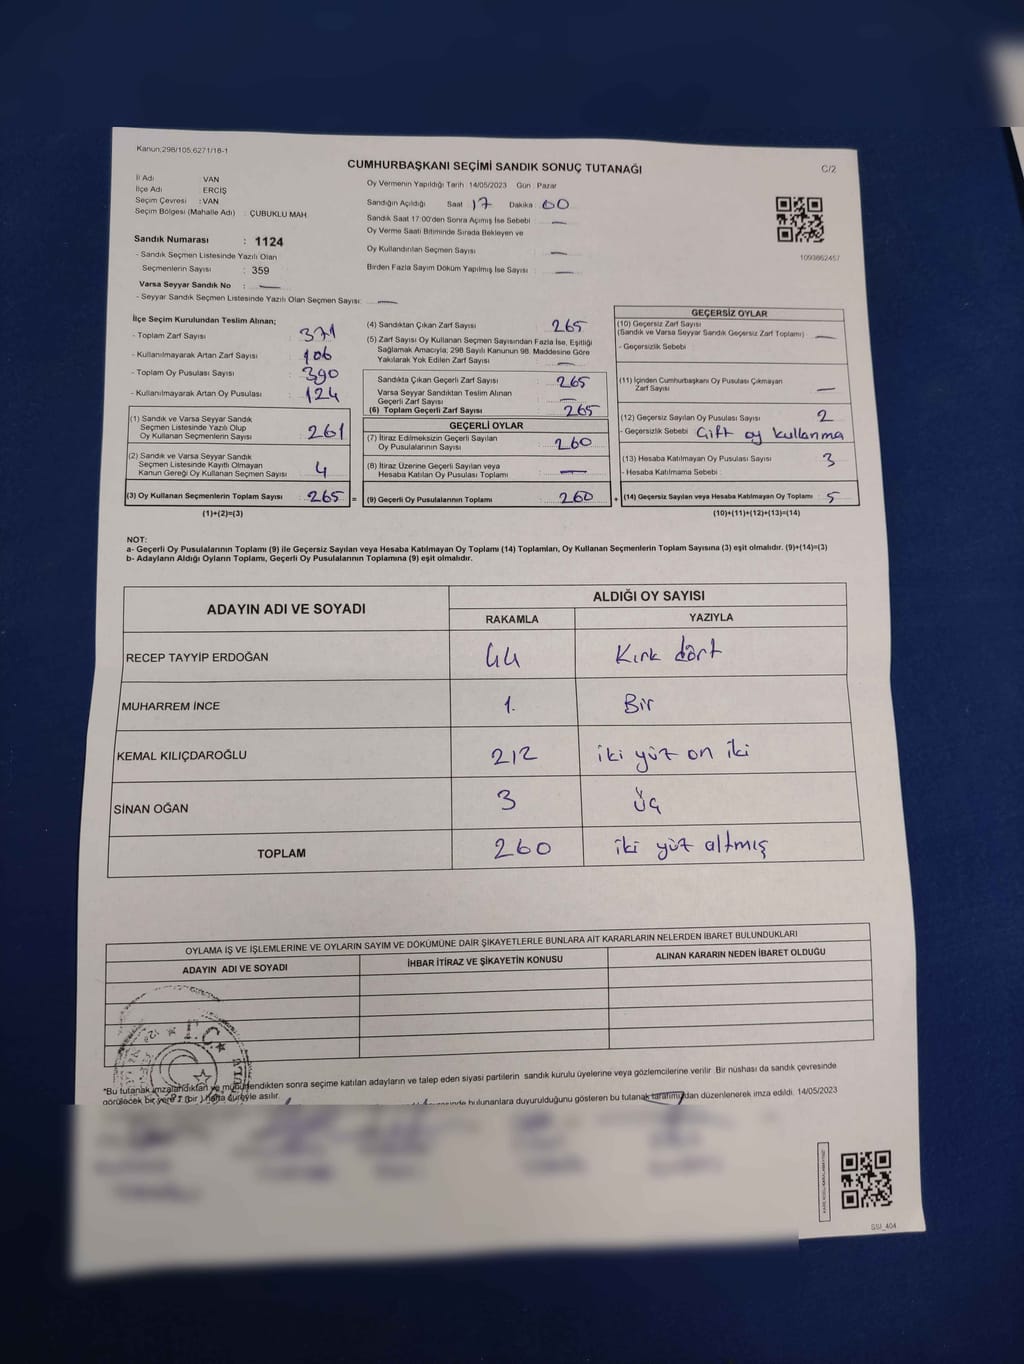 Kanun;298/105,6271/18-1
CUMHURBAŞKANI SEÇİMİ SANDIK SONUÇ TUTANAĞI
C/2
İl Adı VAN
İlçe Adı ERCİŞ
Seçim Çevresi : VAN
Seçim Bölgesi (Mahalle Adı) : ÇUBUKLU MAH
Sandık Numarası : 1124
- Sandık Seçmen Listesinde Yazılı Olan
Seçmenlerin Sayısı : 359
Varsa Seyyar Sandık No : —
- Seyyar Sandık Seçmen Listesinde Yazılı Olan Seçmen Sayısı: —
Oy Vermenin Yapıldığı Tarih :14/05/2023 Gün : Pazar
Sandığın Açıldığı Saat 17 Dakika 00
Sandık Saat 17:00'den Sonra Açımış İse Sebebi —
Oy Verme Saati Bitiminde Sırada Bekleyen ve
Oy Kullandırılan Seçmen Sayısı —
Birden Fazla Sayım Döküm Yapılmış İse Sayısı —
1093862457
İlçe Seçim Kurulundan Teslim Alınan;
- Toplam Zarf Sayısı : 371
- Kullanılmayarak Artan Zarf Sayısı : 106
- Toplam Oy Pusulası Sayısı : 390
- Kullanılmayarak Artan Oy Pusulası : 124
(1) Sandık ve Varsa Seyyar Sandık
Seçmen Listesinde Yazılı Olup
Oy Kullanan Seçmenlerin Sayısı : 261
(2) Sandık ve Varsa Seyyar Sandık
Seçmen Listesinde Kayıtlı Olmayan
Kanun Gereği Oy Kullanan Seçmen Sayısı : 4
(3) Oy Kullanan Seçmenlerin Toplam Sayısı : 265 =
(1)+(2)=(3)
(4) Sandıktan Çıkan Zarf Sayısı : 265
(5) Zarf Sayısı Oy Kullanan Seçmen Sayısından Fazla İse, Eşitliği
Sağlamak Amacıyla; 298 Sayılı Kanunun 98. Maddesine Göre
Yakılarak Yok Edilen Zarf Sayısı —
Sandıkta Çıkan Geçerli Zarf Sayısı : 265
Varsa Seyyar Sandıktan Teslim Alınan
Geçerli Zarf Sayısı —
(6) Toplam Geçerli Zarf Sayısı : 265
GEÇERLİ OYLAR
(7) İtiraz Edilmeksizin Geçerli Sayılan
Oy Pusulalarının Sayısı : 260
(8) İtiraz Üzerine Geçerli Sayılan veya
Hesaba Katılan Oy Pusulası Toplamı : —
(9) Geçerli Oy Pusulalarının Toplamı : 260 +
GEÇERSİZ OYLAR
(10) Geçersiz Zarf Sayısı
(Sandık ve Varsa Seyyar Sandık Geçersiz Zarf Toplamı) : —
- Geçersizlik Sebebi
(11) İçinden Cumhurbaşkanı Oy Pusulası Çıkmayan
Zarf Sayısı —
(12) Geçersiz Sayılan Oy Pusulası Sayısı : 2
- Geçersizlik Sebebi Çift oy kullanma
(13) Hesaba Katılmayan Oy Pusulası Sayısı : 3
- Hesaba Katılmama Sebebi :
(14) Geçersiz Sayılan veya Hesaba Katılmayan Oy Toplamı : 5
(10)+(11)+(12)+(13)=(14)
NOT:
a- Geçerli Oy Pusulalarının Toplamı (9) ile Geçersiz Sayılan veya Hesaba Katılmayan Oy Toplamı (14) Toplamları, Oy Kullanan Seçmenlerin Toplam Sayısına (3) eşit olmalıdır. (9)+(14)=(3)
b- Adayların Aldığı Oyların Toplamı, Geçerli Oy Pusulalarının Toplamına (9) eşit olmalıdır.
ADAYIN ADI VE SOYADI
ALDIĞI OY SAYISI
RAKAMLA YAZIYLA
RECEP TAYYİP ERDOĞAN 44 Kırk dört
MUHARREM İNCE 1. Bir
KEMAL KILIÇDAROĞLU 212 iki yüz on iki
SİNAN OĞAN 3 Üç
TOPLAM 260 iki yüz altmış
OYLAMA İŞ VE İŞLEMLERİNE VE OYLARIN SAYIM VE DÖKÜMÜNE DAİR ŞİKAYETLERLE BUNLARA AİT KARARLARIN NELERDEN İBARET BULUNDUKLARI
ADAYIN ADI VE SOYADI İHBAR İTİRAZ VE ŞİKAYETİN KONUSU ALINAN KARARIN NEDEN İBARET OLDUĞU
T.C.
*Bu tutanak imzalandıktan ve mühürlendikten sonra seçime katılan adayların ve talep eden siyasi partilerin sandık kurulu üyelerine veya gözlemcilerine verilir. Bir nüshası da sandık çevresinde
görülecek bir yere 1 (bir) hafta süreyle asılır.
bulunanlara duyurulduğunu gösteren bu tutanak tarafımızdan düzenlenerek imza edildi. 14/05/2023
SSI_404